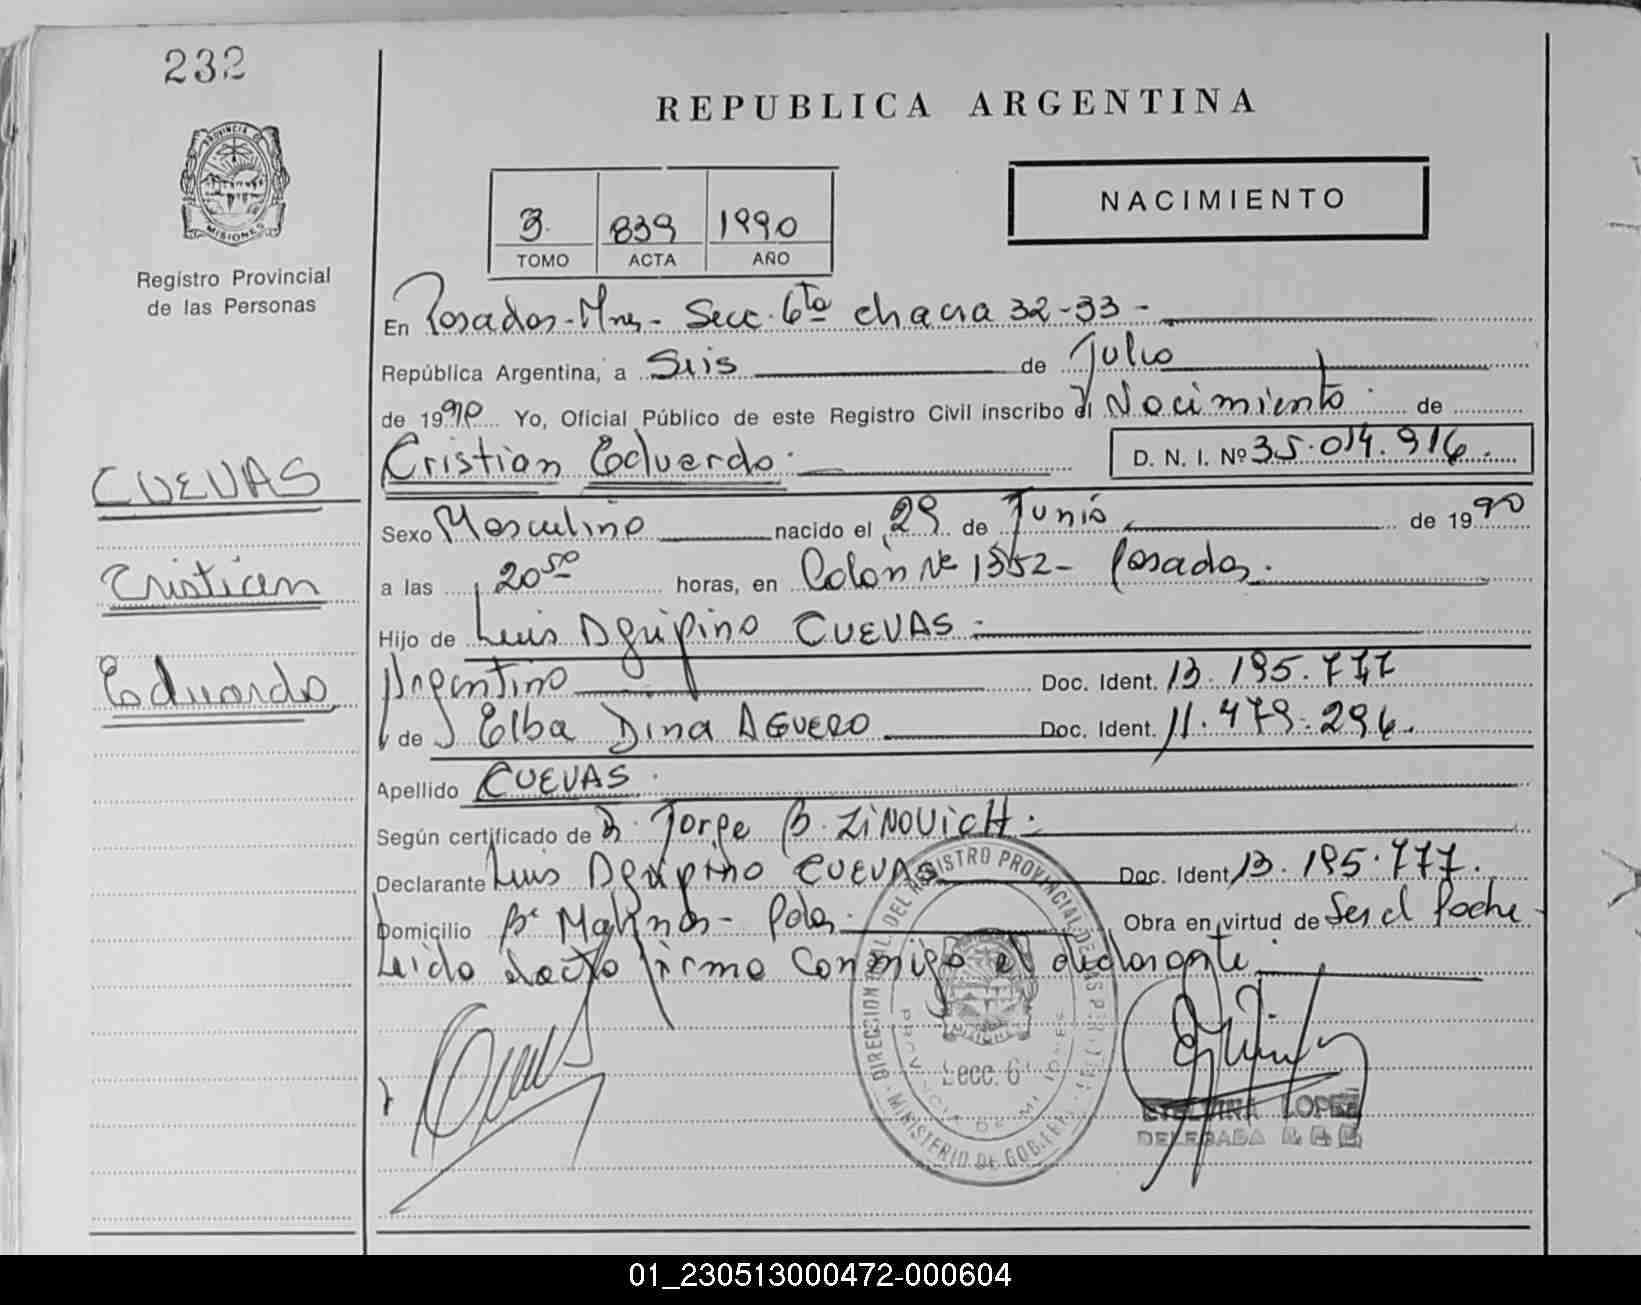 232
REPUBLICA ARGENTINA
PROVINCIA DE
MISIONES
Registro Provincial
de las Personas
3. 839 1990
TOMO ACTA AÑO
NACIMIENTO
En Posadas - Mnes - Secc. 6ta chacra 32-33 -
República Argentina, a Seis de Julio
de 1990 Yo, Oficial Público de este Registro Civil inscribo el Nacimiento de
Cristian Eduardo. D. N. I. Nº 35.014.916.
CUEVAS
Cristian
Eduardo
Sexo Masculino nacido el 29 de Junio de 1990
a las 20 50 horas, en Colón Nº 1352 - Posadas.
Hijo de Luis Agripino CUEVAS -
Argentino Doc. Ident. 13.195.777
y de Elba Dina AGUERO Doc. Ident. 11.479.294.
Apellido CUEVAS.
Según certificado de Dr. Jorge B. ZINOVICH.
Declarante Luis Agripino CUEVAS Doc. Ident 13.195.777.
Domicilio Bº Malvinas - Pdas. Obra en virtud de Ser el Padre -
Leida el acta firma conmigo el declarante
DIRECCION GRAL DEL REGISTRO PROVINCIAL DE LAS PERSONAS
MINISTERIO DE GOBIERNO
PROVINCIA DE MISIONES
Secc. 6
ETELVINA LOPEZ
DELEGADA
01_230513000472-000604